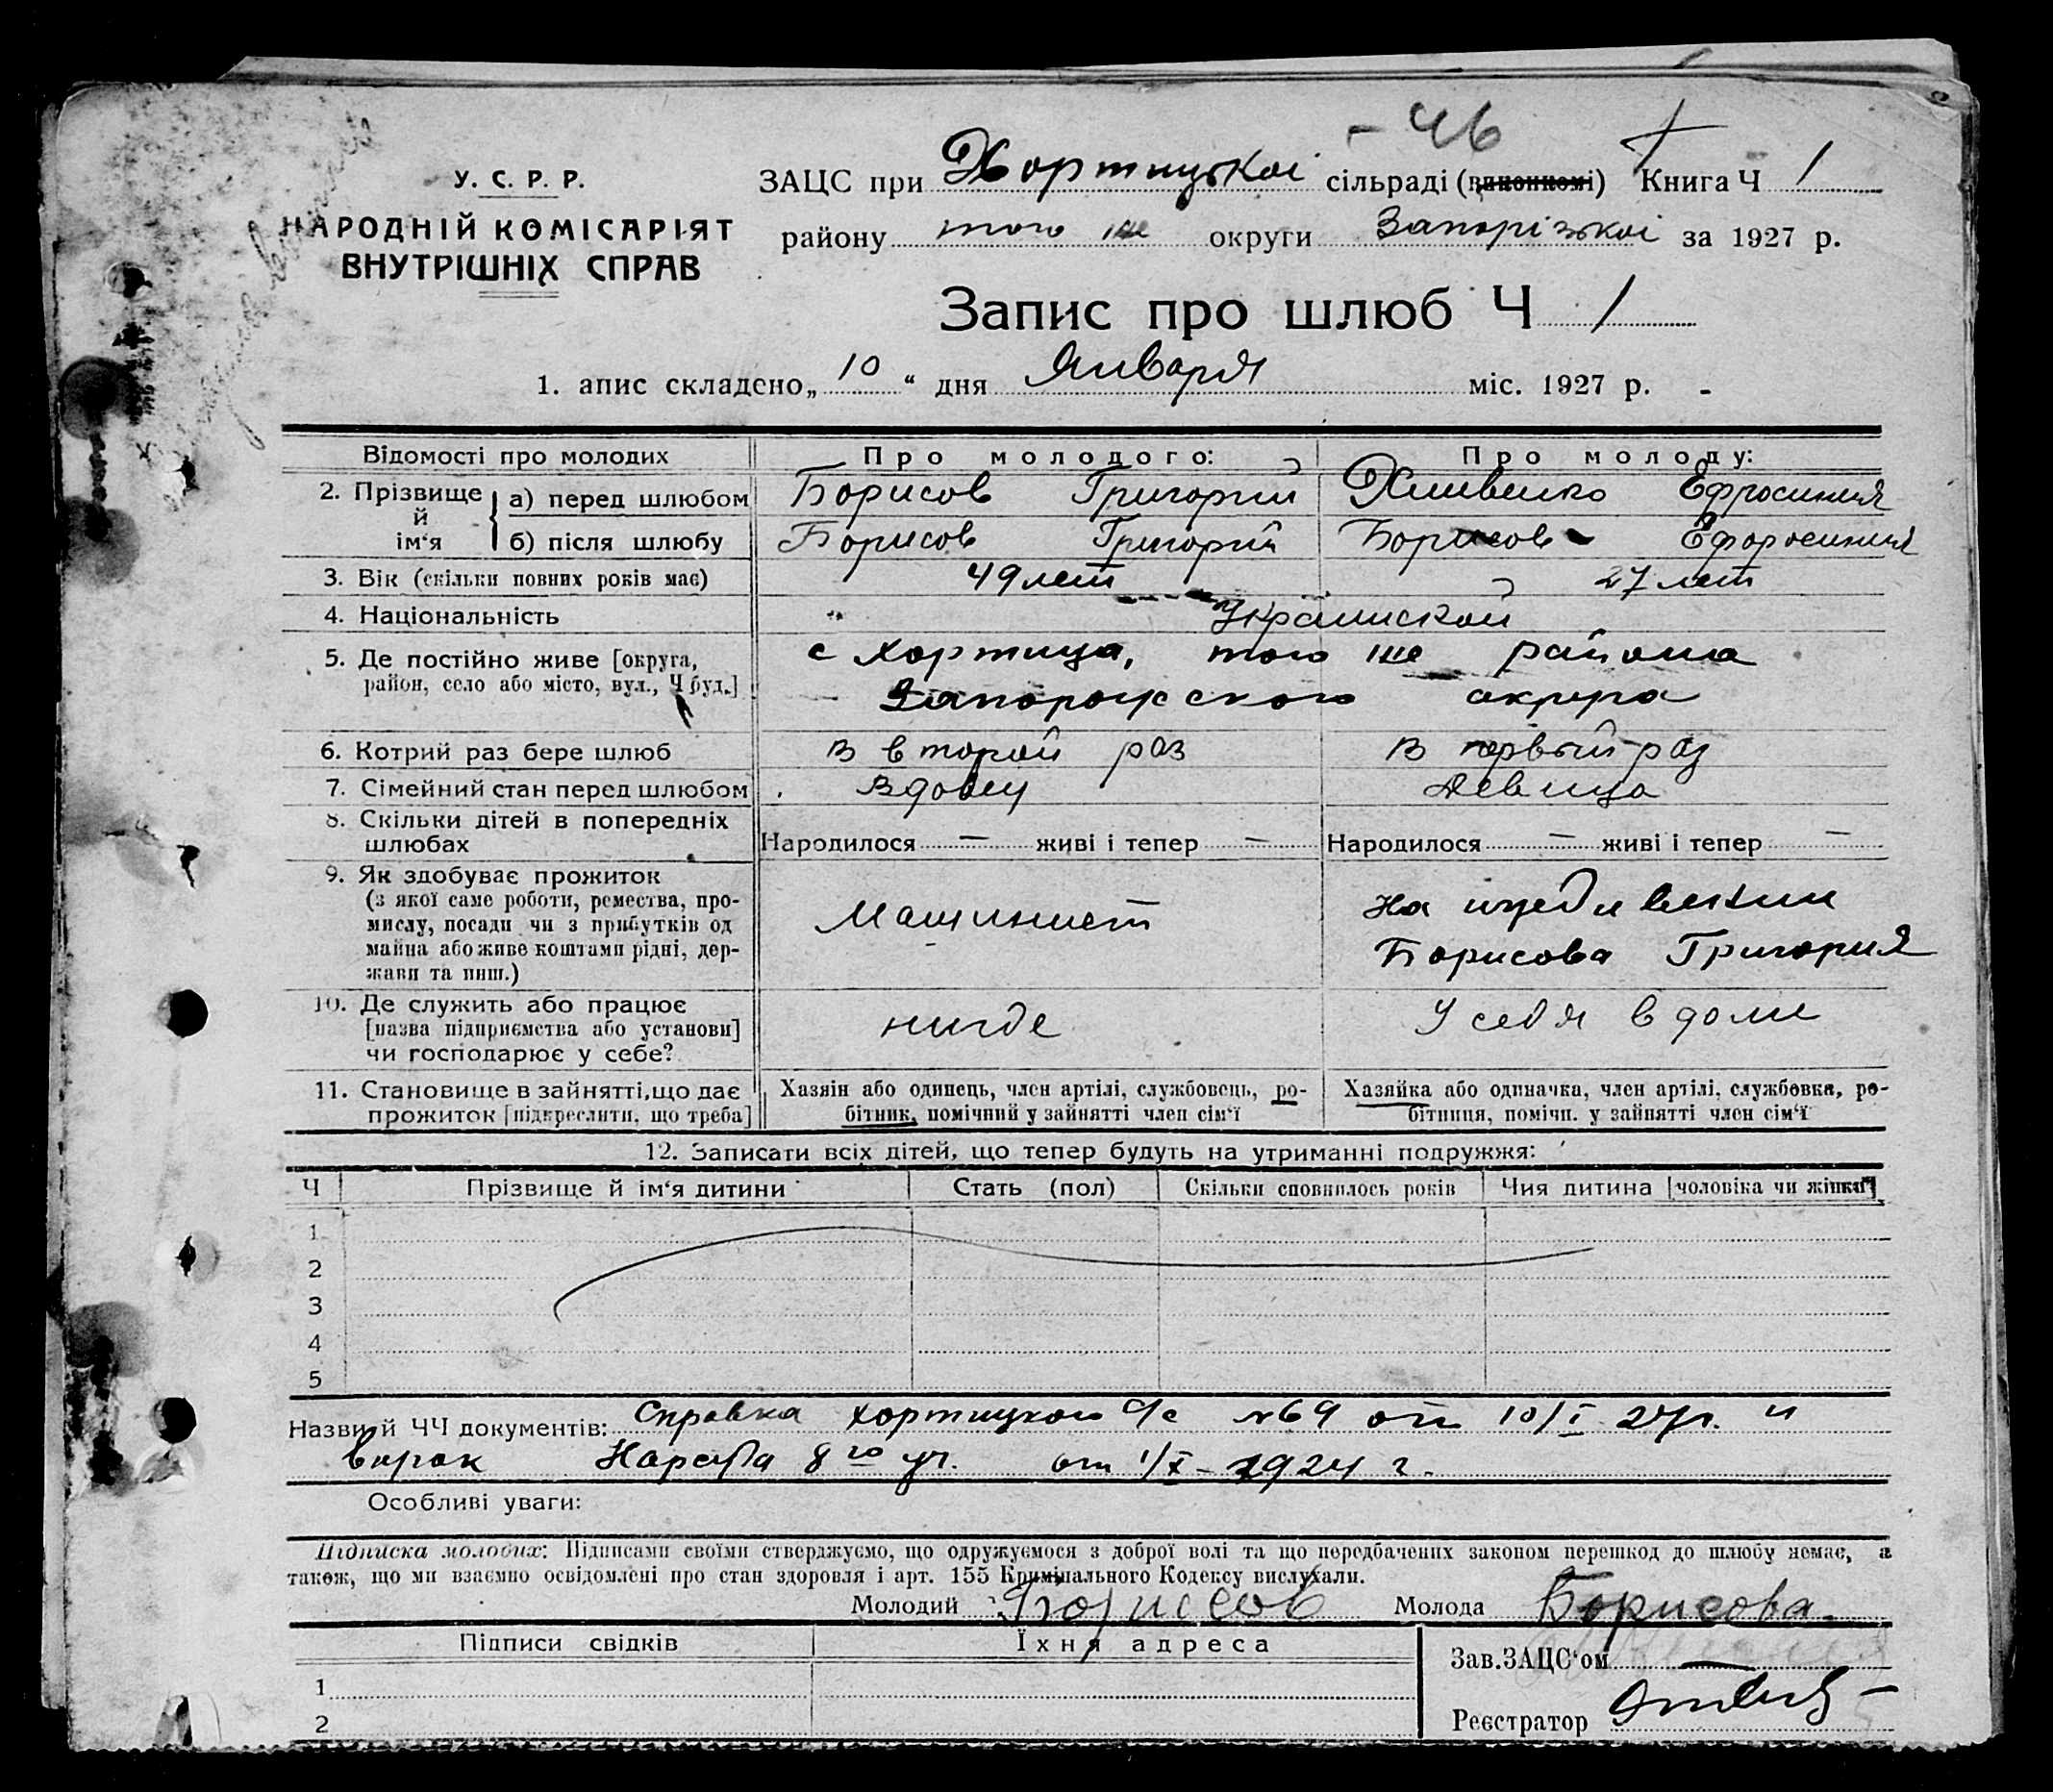 - 46
У. С. Р. Р.
НАРОДНІЙ КОМІСАРІЯТ
ВНУТРІШНІХ СПРАВ
ЗАЦС при Хортицькоі сільраді (виконкомі) Книга Ч 1
району того же округи Запорізькоі за 1927 р.
Запис про шлюб Ч 1
1. апис складено „10“ дня Января міс. 1927 р.
Відомості про молодих Про молодого: Про молоду:
2. Прізвище й ім‘я
а) перед шлюбом Борисов Григорий Хливенко Ефросиния
б) після шлюбу Борисов Григорий Борисов Ефросиния
3. Вік (скільки повних років має) 49 лет 27 лет
4. Національність Украинской
5. Де постійно живе [округа, с Хортица, того же района
район, село або місто, вул., Ч буд.] Запорожского округа
6. Котрий раз бере шлюб в второй раз в первый раз
7. Сімейний стан перед шлюбом вдовец Девица
8. Скільки дітей в попередніх
шлюбах Народилося — живі і тепер — Народилося — живі і тепер —
9. Як здобуває прожиток
(з якої саме роботи, ремества, про-
мислу, посади чи з прибутків од
майна або живе коштами рідні, дер-
жави та инш.)
Машинист
На иждивении
Борисова Григория
10. Де служить або працює
[назва підприємства або установи]
чи господарює у себе?
нигде
У себя в доме
11. Становище в зайнятті, що дає
прожиток [підкреслити, що треба]
Хазяін або одинець, член артілі, службовець, ро-
бітник, помічний у зайнятті член сім‘ї
Хазяйка або одиначка, член артілі, службовка, ро-
бітниця, помічн. у зайнятті член сім‘ї
12. Записати всіх дітей, що тепер будуть на утриманні подружжя:
Ч Прізвище й ім‘я дитини Стать (пол) Скільки сповнилось років Чия дитина [чоловіка чи жінки]
1
2
3
4
5
Назви й ЧЧ документів: Справка Хортицкого с/с №69 от 10/I 27г. и
от 1/X - 1924 г.
Особливі уваги:
Підписка молодих: Підписами своїми стверджуємо, що одружуємося з доброї волі та що передбачених законом перешкод до шлюбу немає, а
також, що ми взаємно освідомлені про стан здоровля і арт. 155 Кримінального Кодексу вислухали.
Молодий Борисов Молода Борисова
Підписи свідків Їхня адреса
Зав. ЗАЦС‘ом
1
2
Реєстратор